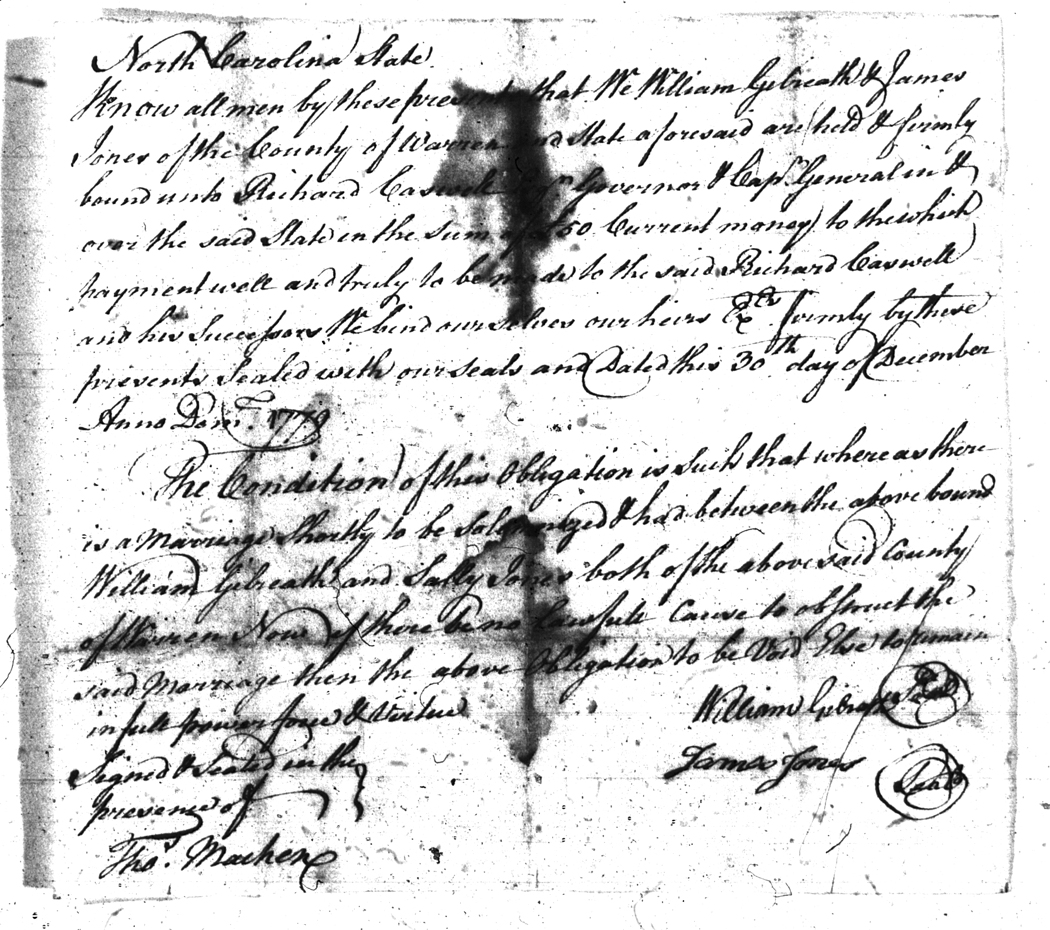 North Carolina State
Know all men by these presents that We William Gilreath & James
Jones of the County of Warren and State aforesaid are held & firmly
bound unto Richard Caswell Governor & Capn. General in &
over the said State in the Sum of £50 Current money to the which
payment well and truly to be made to the said Richard Caswell
and his Successors We bind ourselves our heirs Exrs firmly by these
presents Sealed with our seals and Dated this 30th day of December
Anno Dom. 1778
The Condition of this Obligation is such that whereas there
is a Marriage Shortly to be Solemnized & had between the above bound
William Gilreath and Sally Jones both of the above said County
of Warren Now if there be no lawfull Cause to obstruct the
said Marriage then the above Obligation to be Void Else to remain
in full power force & Virtue
William Gilreath Seal
Signed & Sealed in the
James Jones Seal
presence of
Thos. Machen